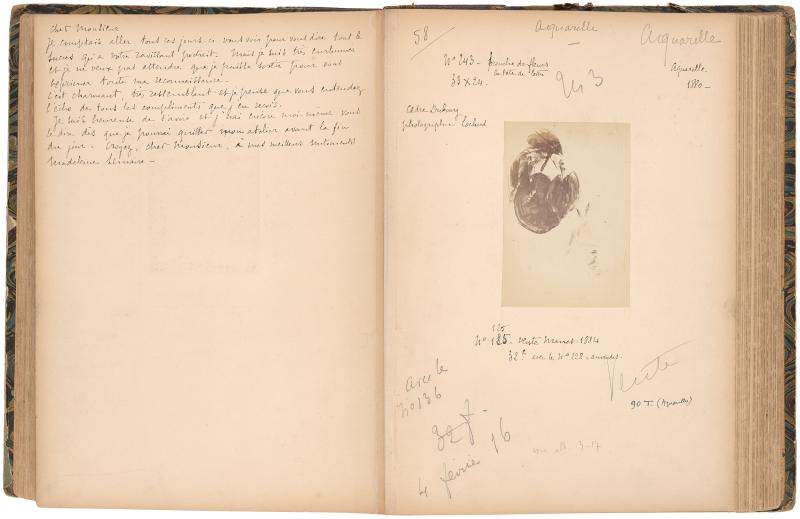 Cher Monsieur
Je comptais aller tous ces jours-ci vous voir pour vous dire tout le
succès qu'a votre ravissant portrait. Mais je suis très enrhumée
et je ne veux pas attendre que je puisse sortir pour vous
exprimer toute ma reconnaissance.
C'est charmant, très ressemblant et je pense que vous entendez
l'écho de tous les compliments que j'en reçois.
Je suis heureuse de l'avoir et j'irai encore moi-même vous
le dire dès que je pourrai quitter mon atelier avant la fin
du jour. Croyez, cher Monsieur, à mes meilleurs sentiments
Madeleine Lemaire -
58
Acquarelle
Acquarelle
N° 243 - de fleurs
en tête de lettre
39 x 24.
Aquarelle
1880 -
Cadre
photographie Lochard
125
N° 185. Vente Manet 1884
32 f. avec le N° 228 - amandes.
Vente
90 T. (Aquarelles)
avec le
N° 136
32 f.
4 février 16